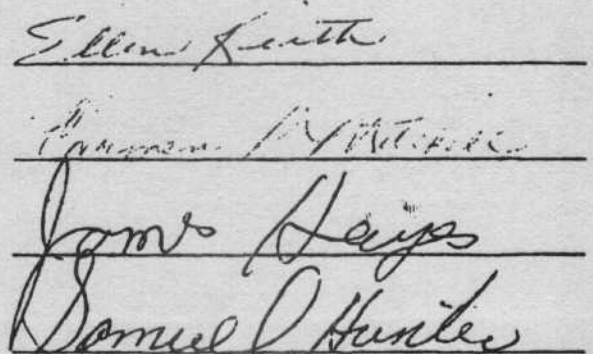 Ellen Keith
James Hayes
Samuel D Hunter